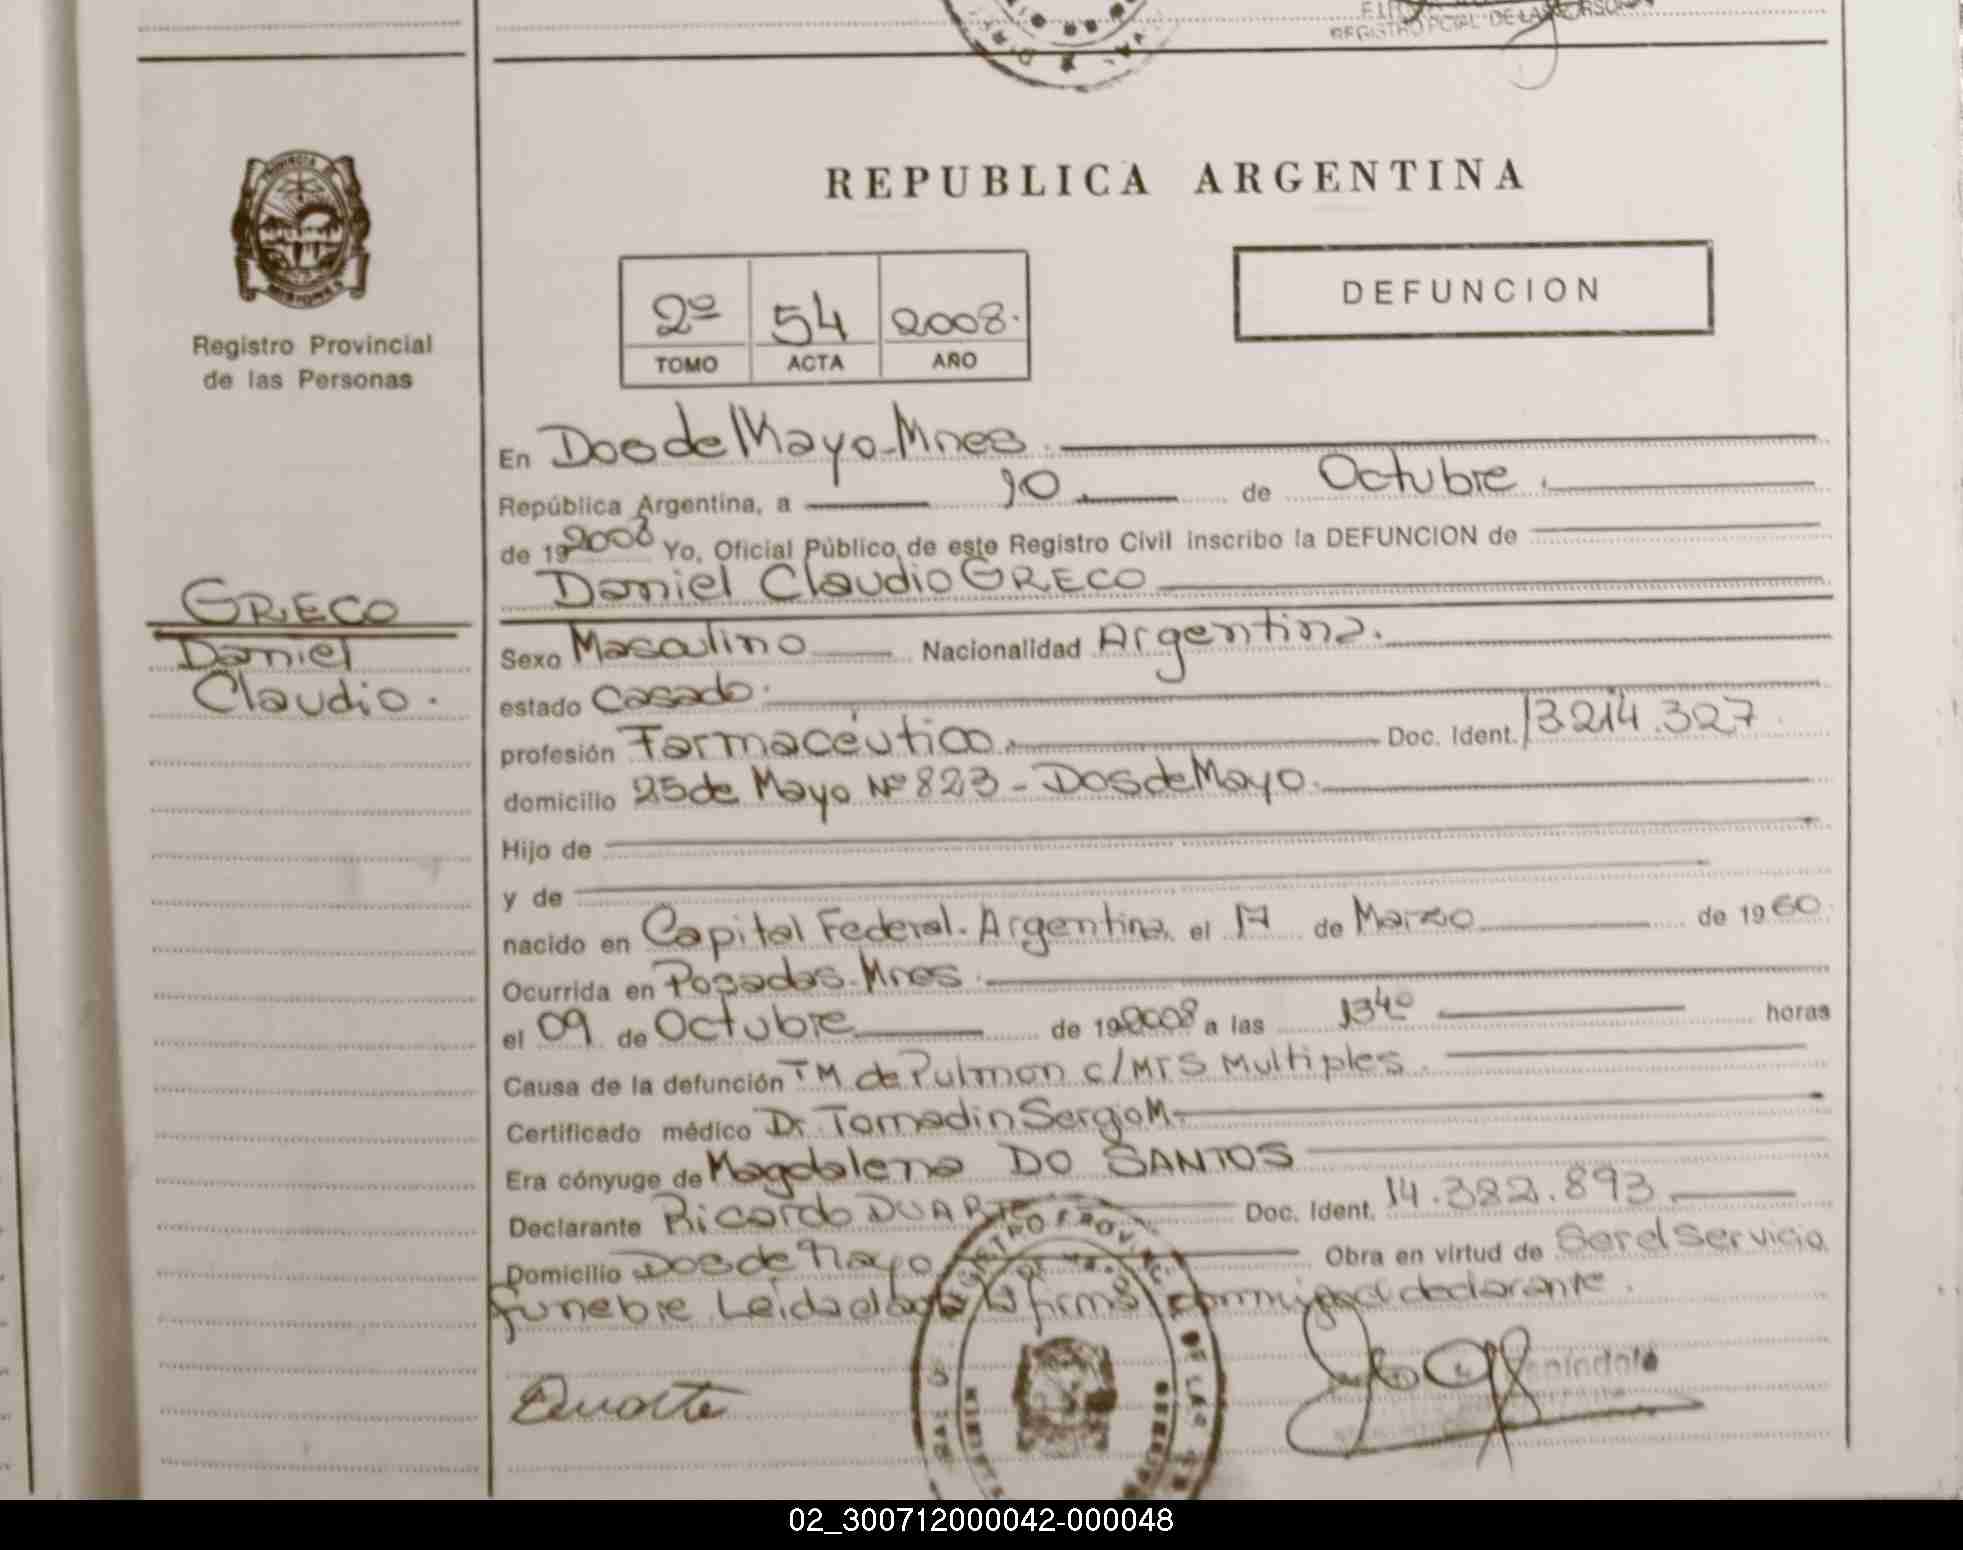 REGISTRO PCIAL DE LAS PERSONAS
PROVINCIA
MISIONES
Registro Provincial
de las Personas
REPUBLICA ARGENTINA
2º 54 2008.
TOMO ACTA AÑO
DEFUNCION
En Dos de Mayo-Mnes.
República Argentina, a 10 de Octubre.
de 192008 Yo, Oficial Público de este Registro Civil inscribo la DEFUNCION de
Daniel Claudio GRECO
GRECO
Daniel
Claudio.
Sexo Masculino Nacionalidad Argentina.
estado Casado.
profesión Farmacéutico. Doc. Ident. 13214.327
domicilio 25 de Mayo Nº 823 - Dos de Mayo.
Hijo de
y de
nacido en Capital Federal. Argentina. el 17 de Marzo de 1960.
Ocurrida en Posadas-Mnes.
el 09 de Octubre de 192008 a las 13⁴⁰ horas
Causa de la defunción TM de Pulmon c/MTS Multiples.
Certificado médico Dr Tomadin Sergio M.
Era cónyuge de Magdalena DO SANTOS
Declarante Ricardo DUARTE Doc. Ident. 14.382.893
Domicilio Dos de Mayo Obra en virtud de Gorel Servicio
funebre. Leida el acta la firma conmigo el declarante.
Duarte
02_300712000042-000048